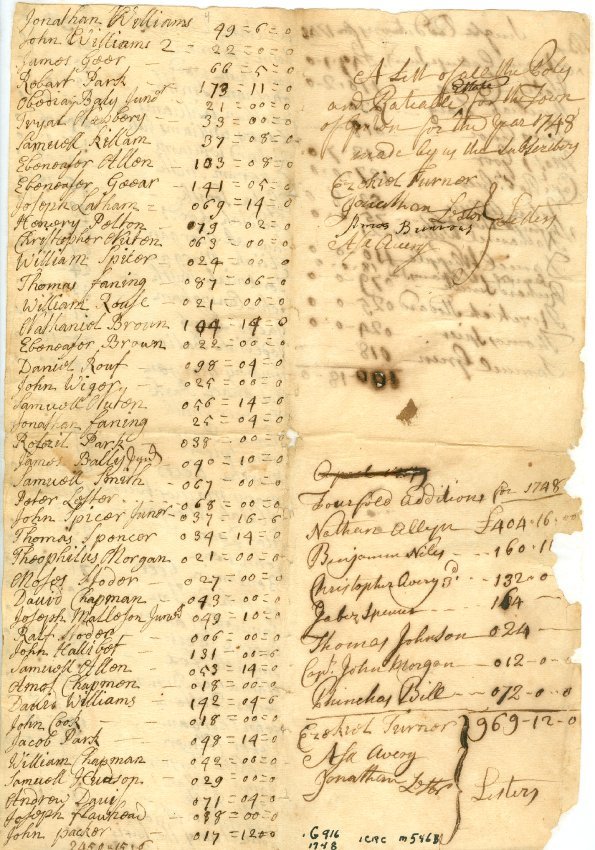 Jonathan Williams 49=6=0
John Williams 2 = 22=0=0
James Geer 66=5=0
Robart Park 173=11=0
Obediah Baly Junor 21=00=0
33=00=0
Samuell Killam 37=08=0
Ebeneaser Allen 103=08=0
Ebeneaser Geear 141=05=0
Joseph Latham = 069=14=0
Henery Pelton 079=02=0
Christopher 063=00=0
William Spicer 024=00=0
Thomas faning 087=06=0
William Rouse 021=00=0
Nathaniel Broun 144=14=0
Ebeneaser Brown 022=00=0
Daniel Rouf 098=04=0
John Wigery 025=00=0
Samuell 056=14=0
Jonathan faning 25=04=0
Park 038=00=0
James Bally Jund 040=10=0
Samuell Smith 067=00=0
Peter Lester 068=00=0
John Spicer Juner 037=16=6
Thomas Spencer 034=14=0
Theophilus Morgan 021=00=0
Moses 027=00=0
David Chapman 043=00=0
Joseph Malleson Junor 049=10=0
Ralf 006=00=0
John 131=01=6
Samuell Allen 053=14=0
Amos Chapmen 018=00=0
Daniel Williams 142=04=6
John Cook 018=00=0
Jacob Park 048=14=0
William Chapman 042=00=0
Samuell Hudson 029=00=0
Andrew Davis 071=04=0
Joseph 038=00=0
John packer 017=12=0
2450=15=6
A List of all the Poly
and Ratiable Estate for the Town
of Groton for the Year 1748
made by us the Subscribers
Ezekiel Turner
Jonathan Lester
Amos Burrows
Asa Avery
Listers
Fourfold Additions for 1748
Nathan Allyn £404-16-00
Benjamin Niles 160-11
Christopher Avery 3d 132-0
Jabez Spencer 164
Thomas Johnson 024
Capt. John Morgan 012-0
Phinehas Bill 072-0-0
Ezekiel Turner 969-12-0
Asa Avery
Jonathan Lester
Listers
.G916 ICRC M5468
1748